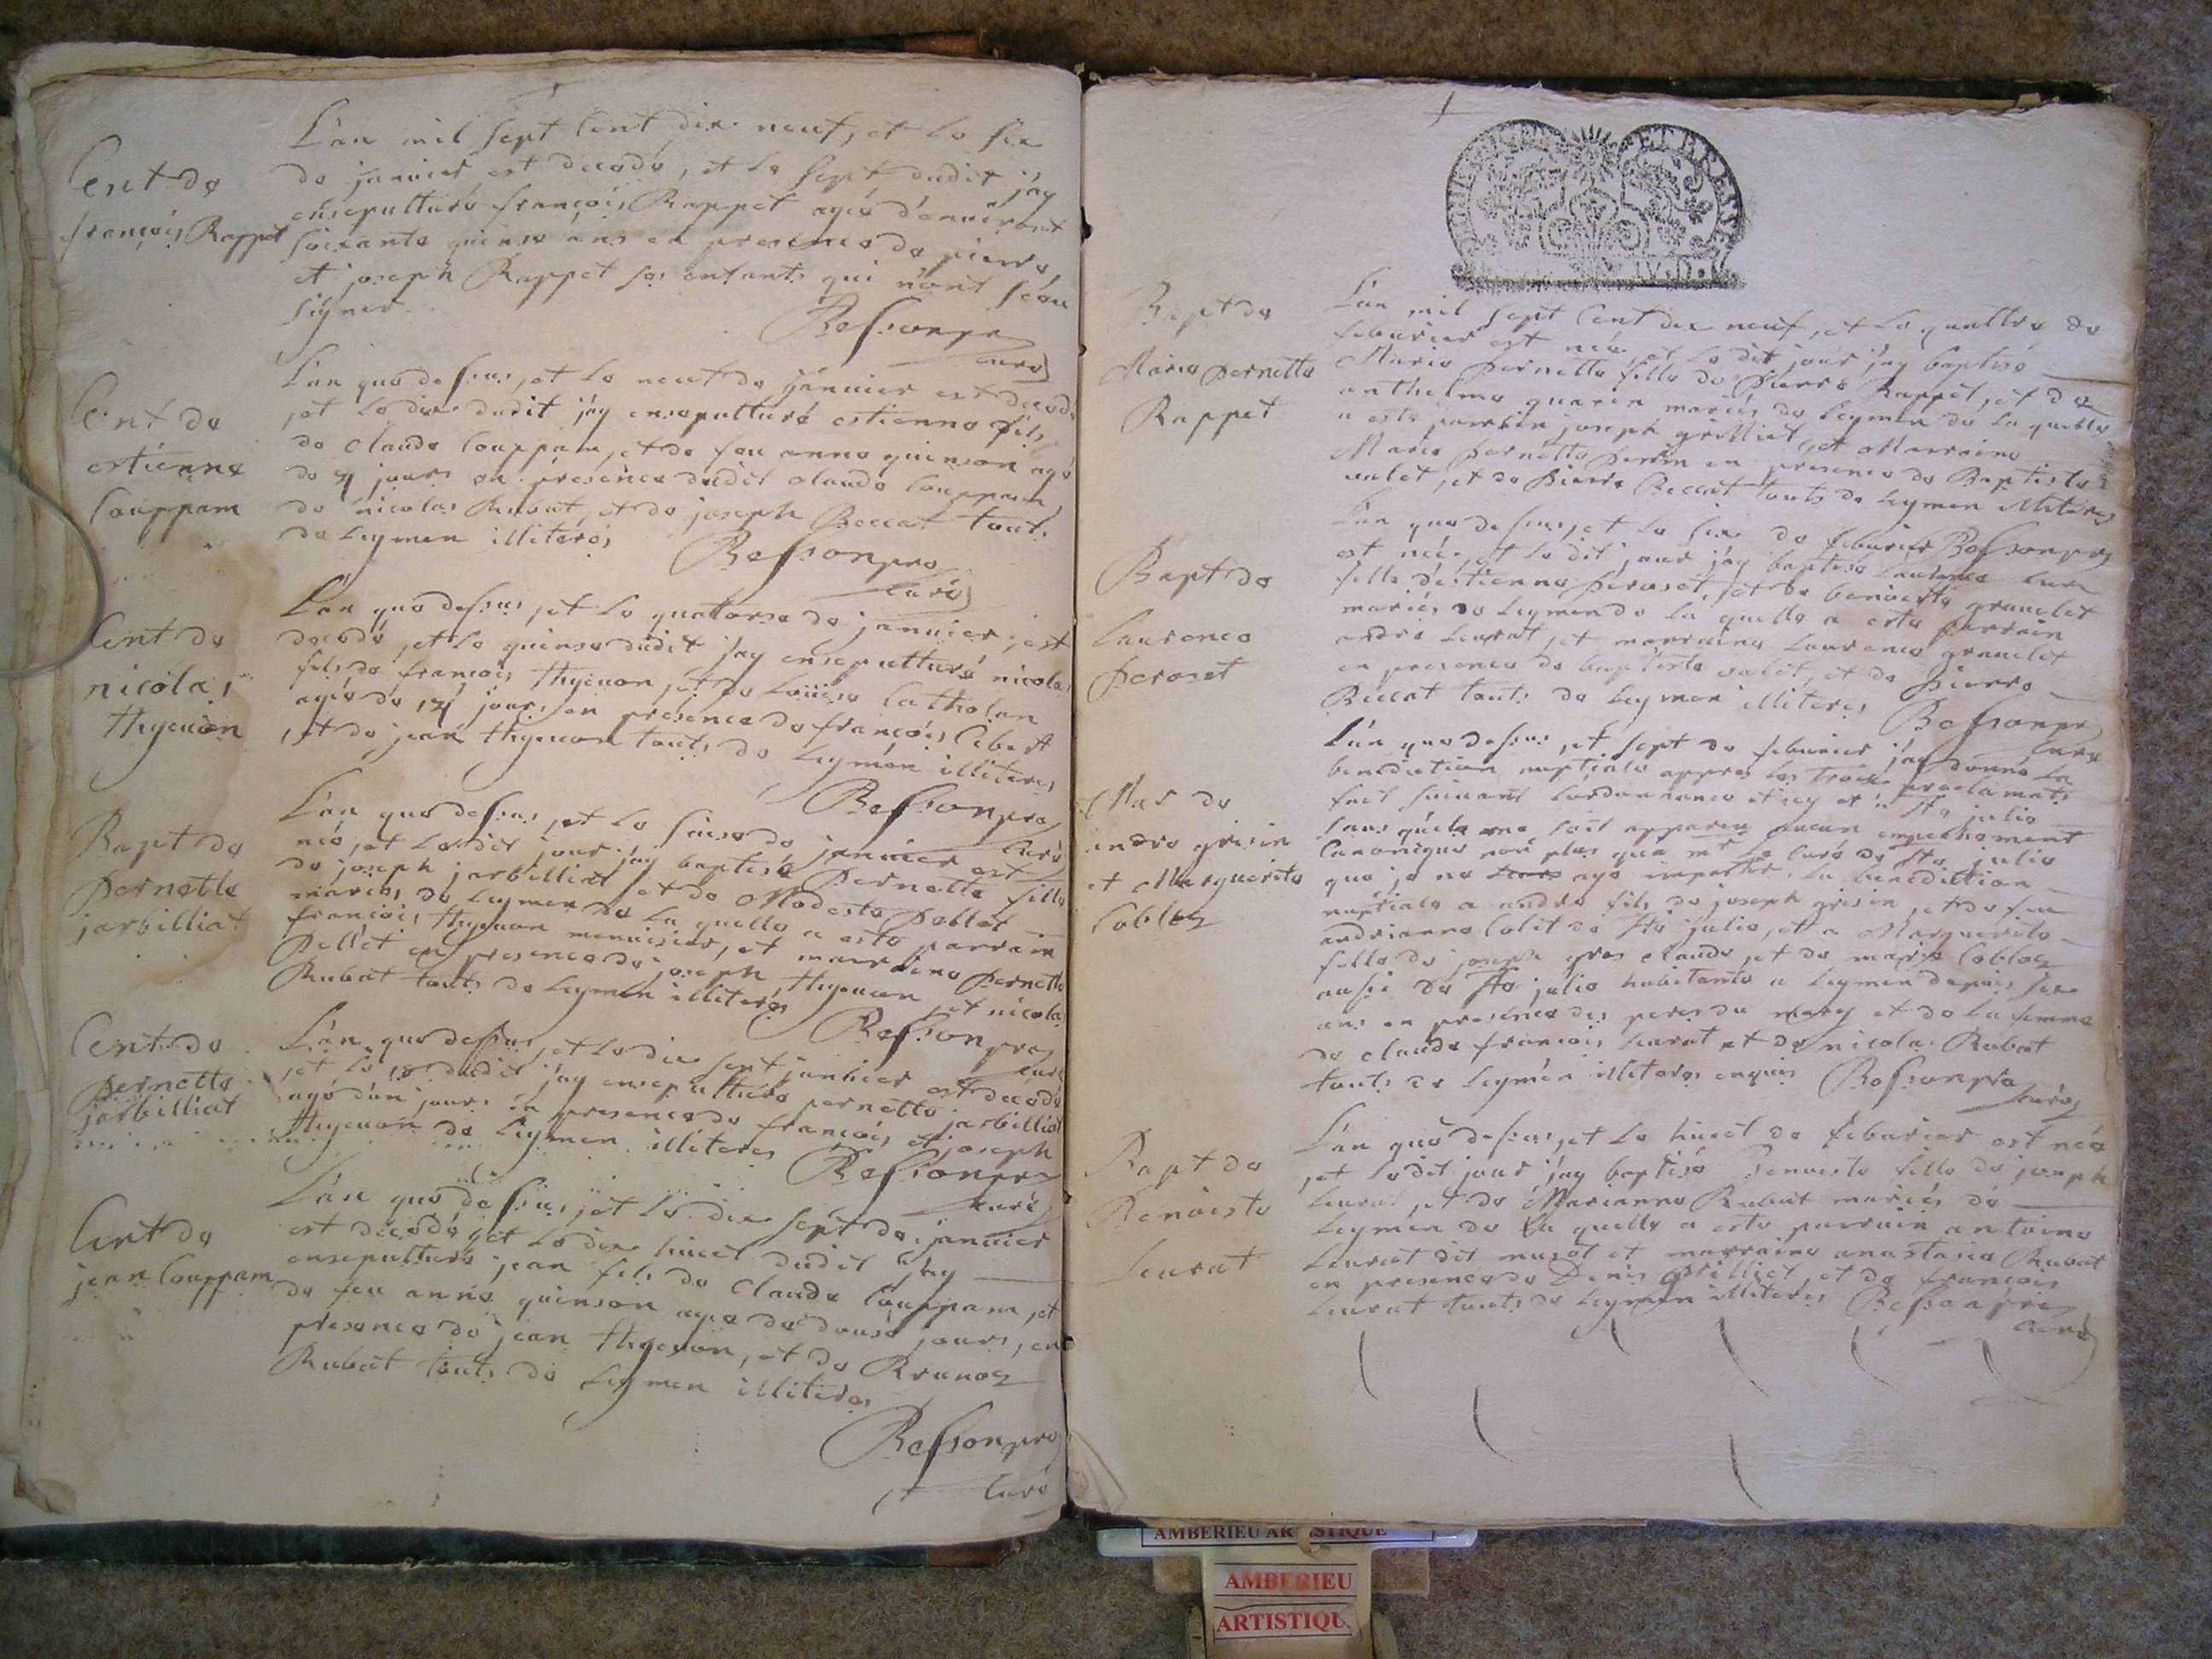 L'an mil sept cent dix neuf, et le six
Ent de
de janvier est decedé, et le sept dudit j'ay
françois Rappet
ensepulturé françois Rappet agé d'environt
soixante quinse ans en presence de pierre,
et joseph Rappet ses enfants qui n'ont sçeu
signer.
Besson pre
curé
L'an que dessus, et le neuf de janvier est decedé
Ent de
estienne
Couppam
,et le dix dudit j'ay ensepulturé estienne fils
de claude Couppam, et de feu anne quinson agé
de 4 jours en présence dudit claude Couppam,
de nicolas Rubat, et de joseph Beccat touts
de Leymen illiterés
Besson pre
curé
Ent de
nicolas
thyenon
L'an que dessus, et le quatorse de janvier, est
decedé, et le quinse dudit j'ay ensepulturé nicolas
fils de françois thyenon, et de Louise Catholan
agé de 4 jours en présence de françois
, et de jean thyenon touts de Leymen illiteres
Besson pre
curé
Bapt de
pernette
jarbilliat
L'an que dessus, et le seise de janvier est
née, et le dit jour j'ay baptisé Pernette fille
de joseph jarbilliat et de Modeste
mariés de Leymen de la quelle a esté parrain
françois thyenon menuisier, et marraine Pernette
Pellet en presence de joseph thyenon, et nicolas
Rubat touts de Leymen illiterés
Besson pre
curé
Ent de
pernette
jarbilliat
L'an que dessus, et le dix sept janvier est decedé
,et le 18 dudit j'ay ensepulturé pernette jarbilliat
agé d'un jour en presence de françois et joseph
thyenon de Leymen illiteres
Besson pre
curé
Ent de
jean Couppam
L'an que dessus, et le dix sept de janvier
est decedé, et le dix huict dudit j'ay
ensepulturé jean fils de Claude Couppam, et
de feu anne quinson agé de douse jours, en
presence de jean thyenon, et de
Rubat touts de Leymen illiteres
Besson pre
curé
Bapt de
Marie pernette
Rappet
L'an mil sept cent dix neuf, et le quattre de
feburier est née, et le dit jour j'ay baptisé
Marie pernette fille de Pierre Rappet, et de
anthelme guarin mariés de Leymen de la quelle
a esté parrain joseph grilliet, et Marraine
Marie pernette perrin en presence de Baptiste
valet, et de Pierre Beccat touts de Leymen illiteres
Besson pre
curé
Bapt de
Laurence
peroset
L'an que dessus, et le six de feburier
est née, et le dit jour j'ay baptisé Laurence
fille d'estienne peroset, et de benoiste gravelet
mariés de Leymen de la quelle a esté parrain
andré Leurat, et marraine Laurence gravelet
en presence de baptiste valet, et de pierre
Beccat touts de Leymen illiteres
Besson pre
curé
Mar de
andré grisin
et Marguerite
L'an que dessus, et sept de feburier j'ay donné la
benediction nuptiale appres les trois proclamats
fait suivant l'ordonnance icy et a Ste julie
sans qu'il me soit apparu aucun empechement
canonique non plus que mr le curé de Ste julie
que je ne aye impettré la benediction
nuptiale a andré fils de joseph grisin, et de feu
andrianne Colit de Ste julie, et a Marguerite
fille de joseph gros claude, et de marie
aussi de Ste julie habitante a Leymen depuis six
ans en présence des peres du mary et de la femme
de claude françois Leurat et de nicolas Rubat
touts de Leymen illiteres enquis Besson pre
curé
Bapt de
Benoiste
Leurat
L'an que dessus, et le huict de feburier est née
,et le dit jour j'ay baptisé Benoiste fille de joseph
Leurat, et de Marianne Rubat mariés de
Leymen de la quelle a esté parrain antoine
Leurat dit musot et marraine anastasie Rubat
en presence de Denis grilliet, et de françois
Leurat touts de Leymen illiteres Besson pre
curé
AMBERIEU ARTISTIQUE
AMBERIEU
ARTISTIQU